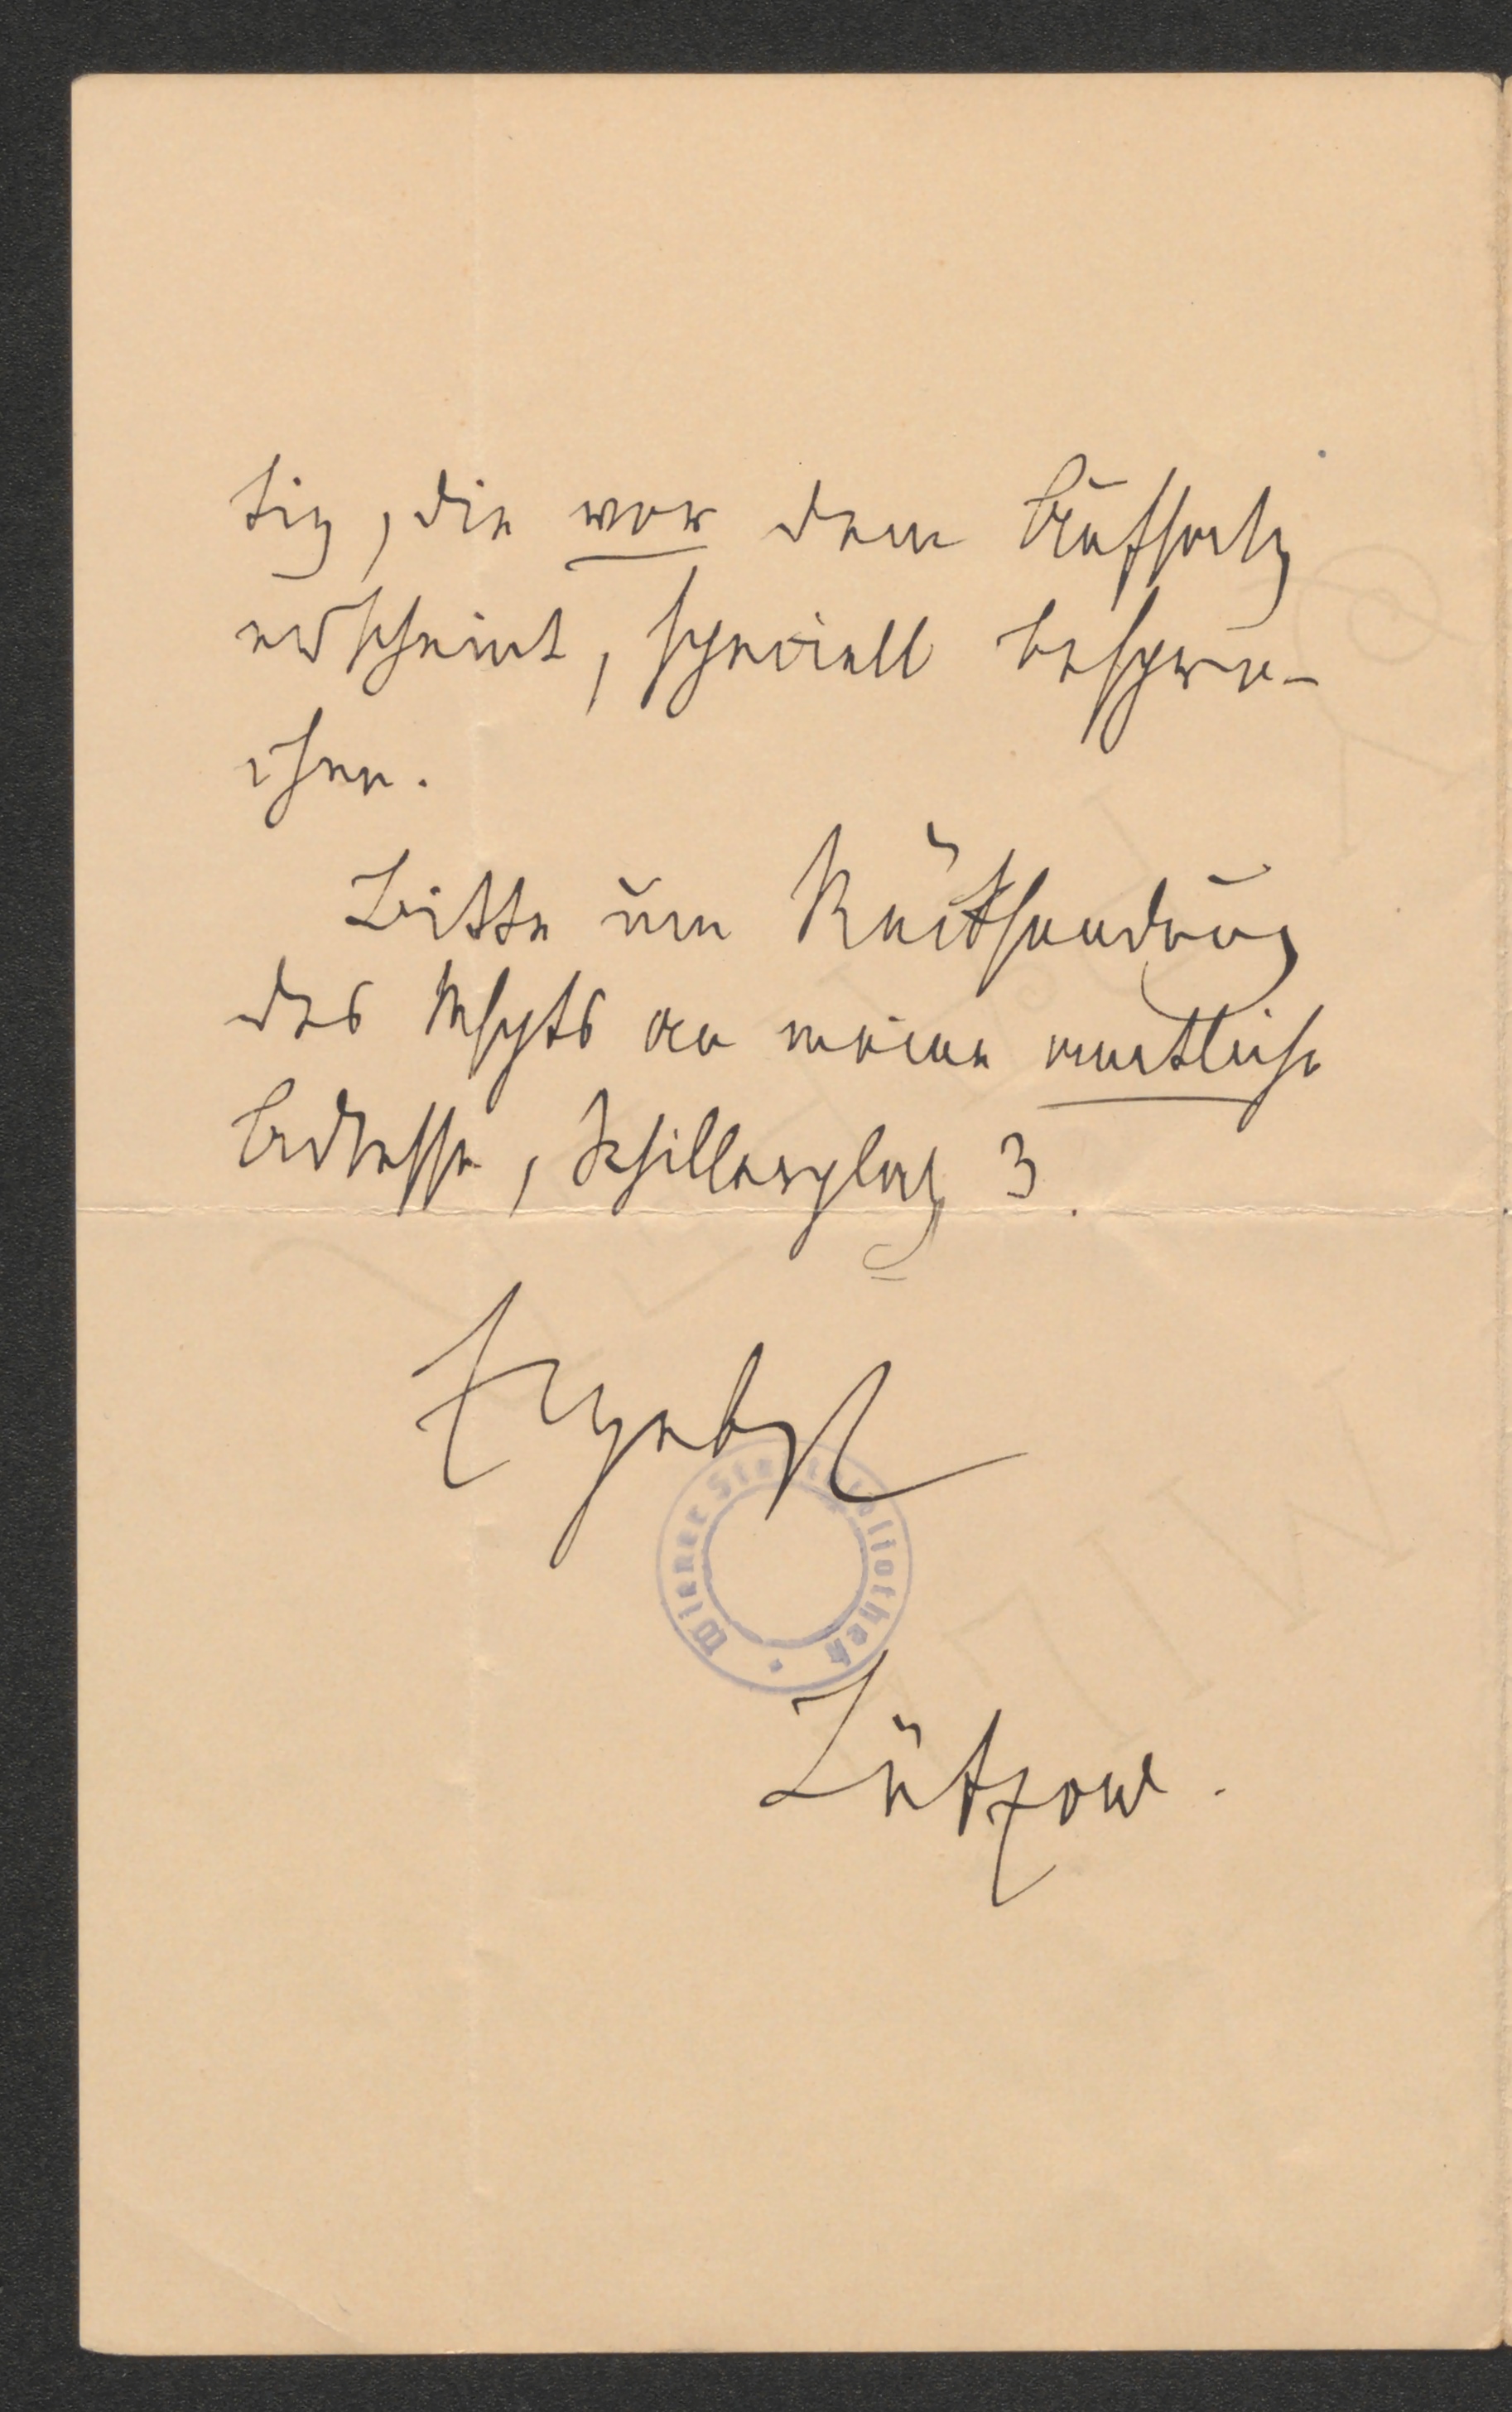 tig, die vor dem Aufsatz
erscheint, speciell bespre-
chen.
Bitte um Rücksendung
des Mspts an meine amtliche
Adresse, Schillerplatz 3.
Ergebst
Wiener Stadtbibliothek
Lützow.